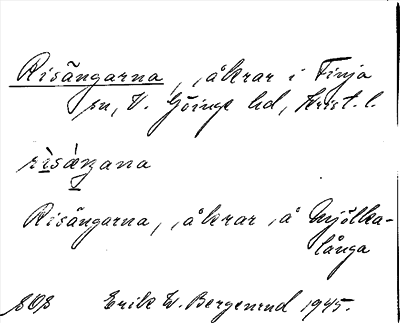 Risängarna, åkrar i Finja
sn, V. Göinge hd, Krist. l.
Risängarna, åkrar å Mjölka-
långa
Erik W. Bergenrud 1945.